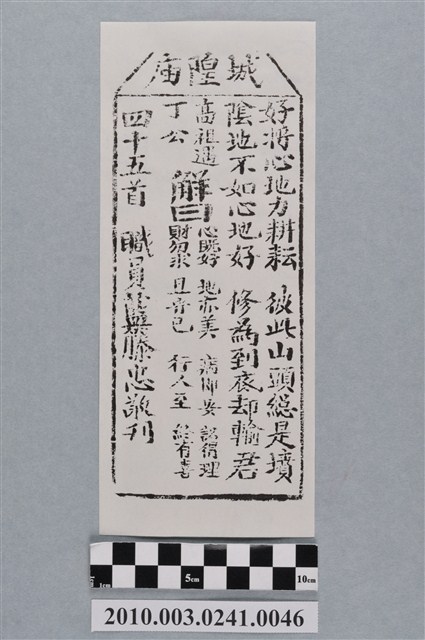 城隍庙
好將心地力耕耘 彼此山頭總是墳
陰地不如心地好 修為到底却輸君
高祖遇
丁公
解曰
心既好 地亦美 病即安 訟得理
財勿求 且守已 行人至 終有喜
四十五首 職員 滕忠敬刋
5cm
10cm
2010.003.0241.0046